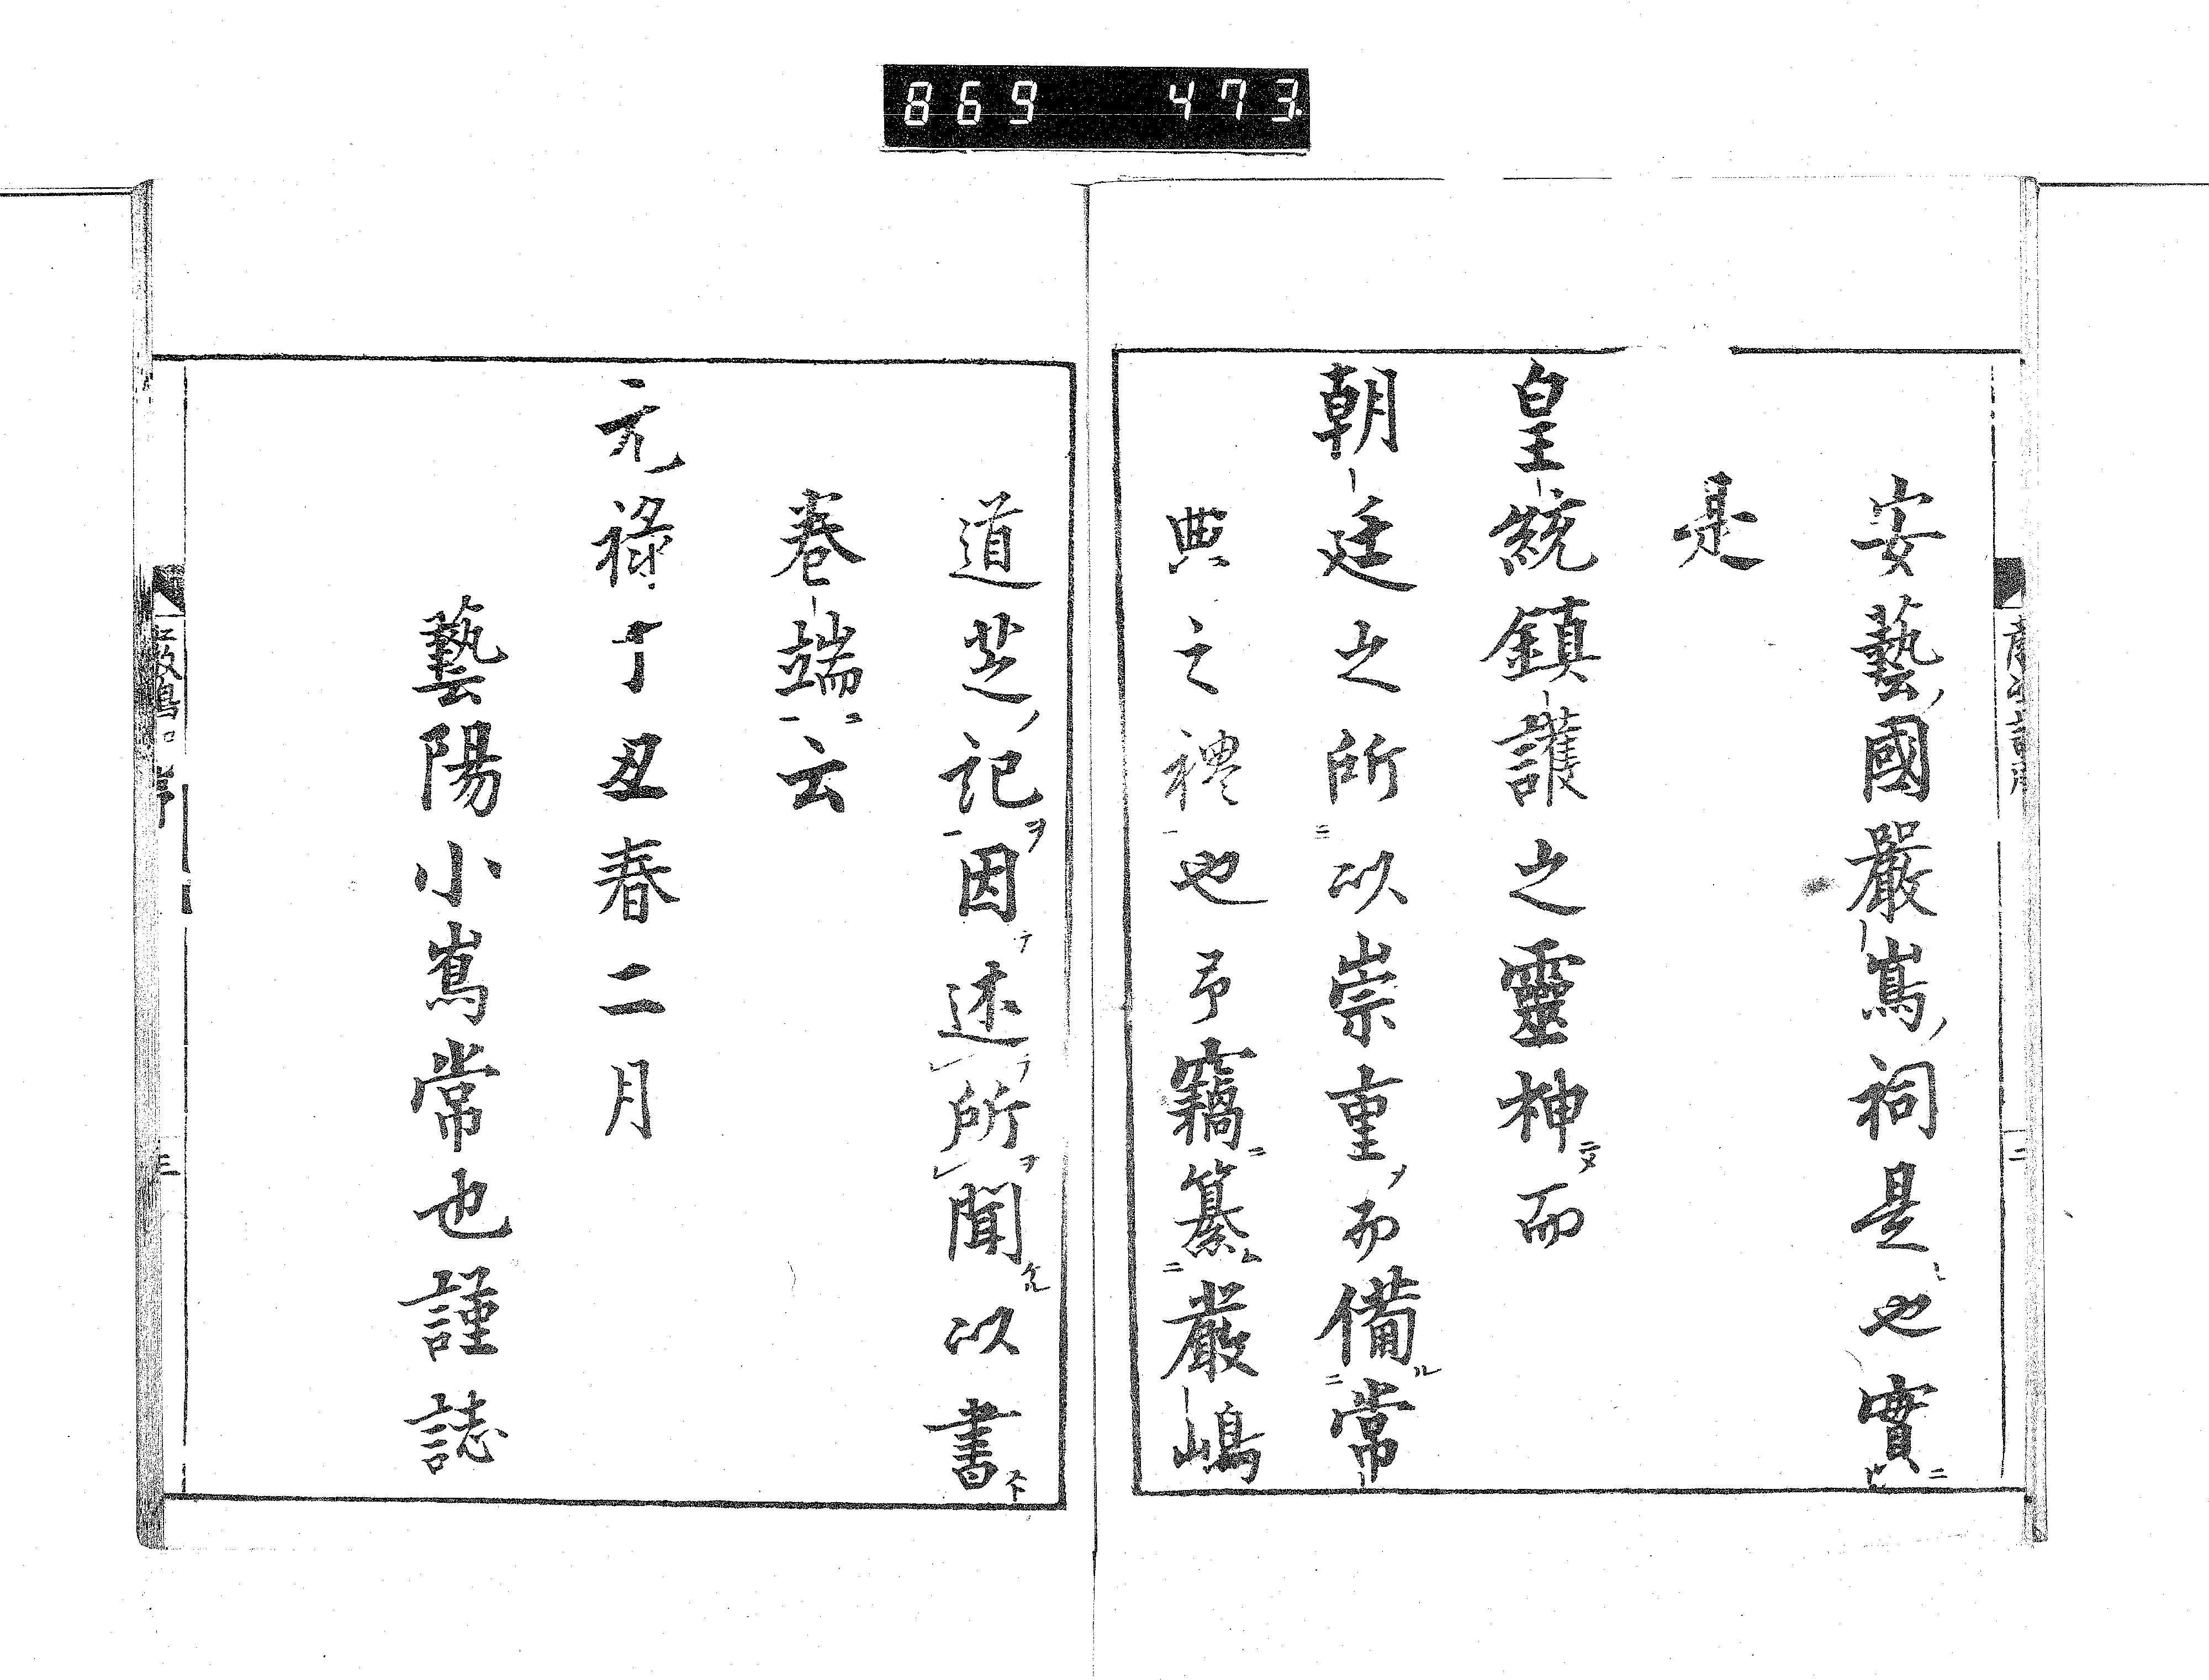 869 473
安藝國嚴嶌祠是也實
是
皇統鎮護之靈神而
朝廷之所以崇重而備常
典之禮也予竊纂嚴嶋
道芝記因述所聞以書
巻端云
元祿丁丑春二月
藝陽小嶌常也謹誌
三